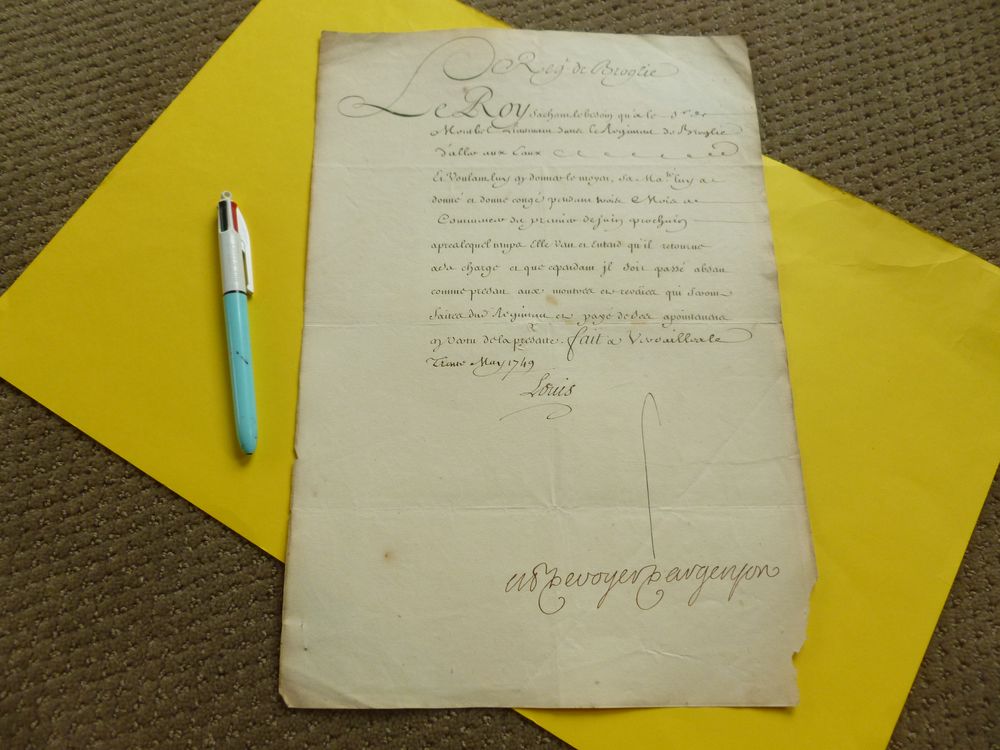 Reg.t de Broglie
Le Roy Sachant le besoin qu'a le S.r de
Lieutenant dans le Regiment de Broglie
d'aller aux Eaux
Et Voulant luy en donner le moyen, Sa Ma.té luy a
donné et donne congé pendant trois Mois a
Commencer du premier de juin prochain
apres lequel temps Elle Veut et Entend qu'il retourne
a sa charge et que cependant il soit passé absent
comme present aux montres et reveües qui seront
faites dud. Regiment et payé de ses apointemens
en Vertu de la presente. fait a Versailles le
Trente May 1749
Louis
De voyer D'argenson